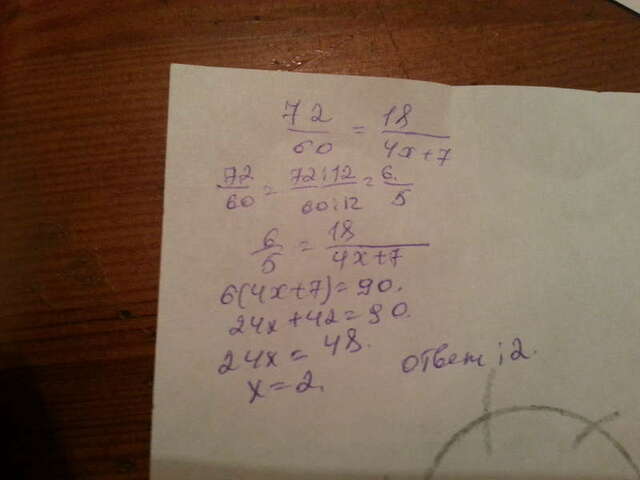 72/60 = 18/4x+7
72/60 = 72:12/60:12 = 6/5
6/5 = 18/4x+7
6(4x+7)=90.
24x+42=90.
24x = 48.
x=2.
ответ: 2.